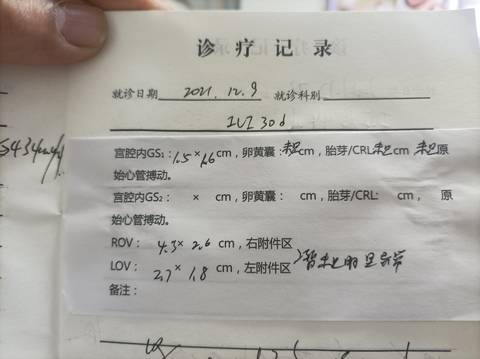 诊疗记录
就诊日期 2021.12.9 就诊科别
IUI 30d
宫腔内GS₁: 1.5×1.6 cm, 卵黄囊: 未见 cm, 胎芽/CRL 未见 cm 未见 原
始心管搏动。
宫腔内GS₂: × cm, 卵黄囊: cm, 胎芽/CRL: cm, 原
始心管搏动。
ROV: 4.3×2.6 cm, 右附件区
LOV: 2.7×1.8 cm, 左附件区 暂未见明显异常
备注: